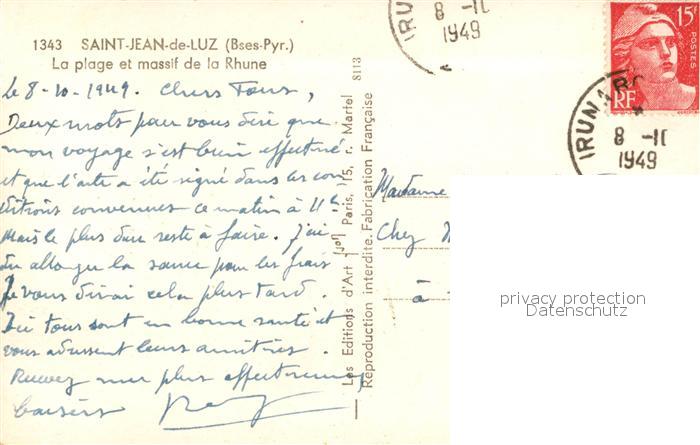 1343 SAINT-JEAN-de-LUZ (Bses-Pyr.)
La plage et massif de la Rhune
Le 8-10-1949. Chers Tous,
Deux mots pour vous dire que
mon voyage s'est bien effectué
et que l'acte a été signé dans les con
ditions convenues ce matin à 11h.
Mais le plus dur reste à faire. J'ai
dû allonger la sauce pour les frais
Je vous dirai cela plus tard.
Ici tous sont en bonne santé et
vous adressent leurs amitiés.
Recevez mes plus affectueux
baisers
8113
Les Editions d'Art "Jof" Paris, 15, r. Martel
Reproduction interdite. Fabrication Française
8 -10
1949
15F
POSTES
RF
8 -10
1949
Madame
Chez
à
privacy protection
Datenschutz